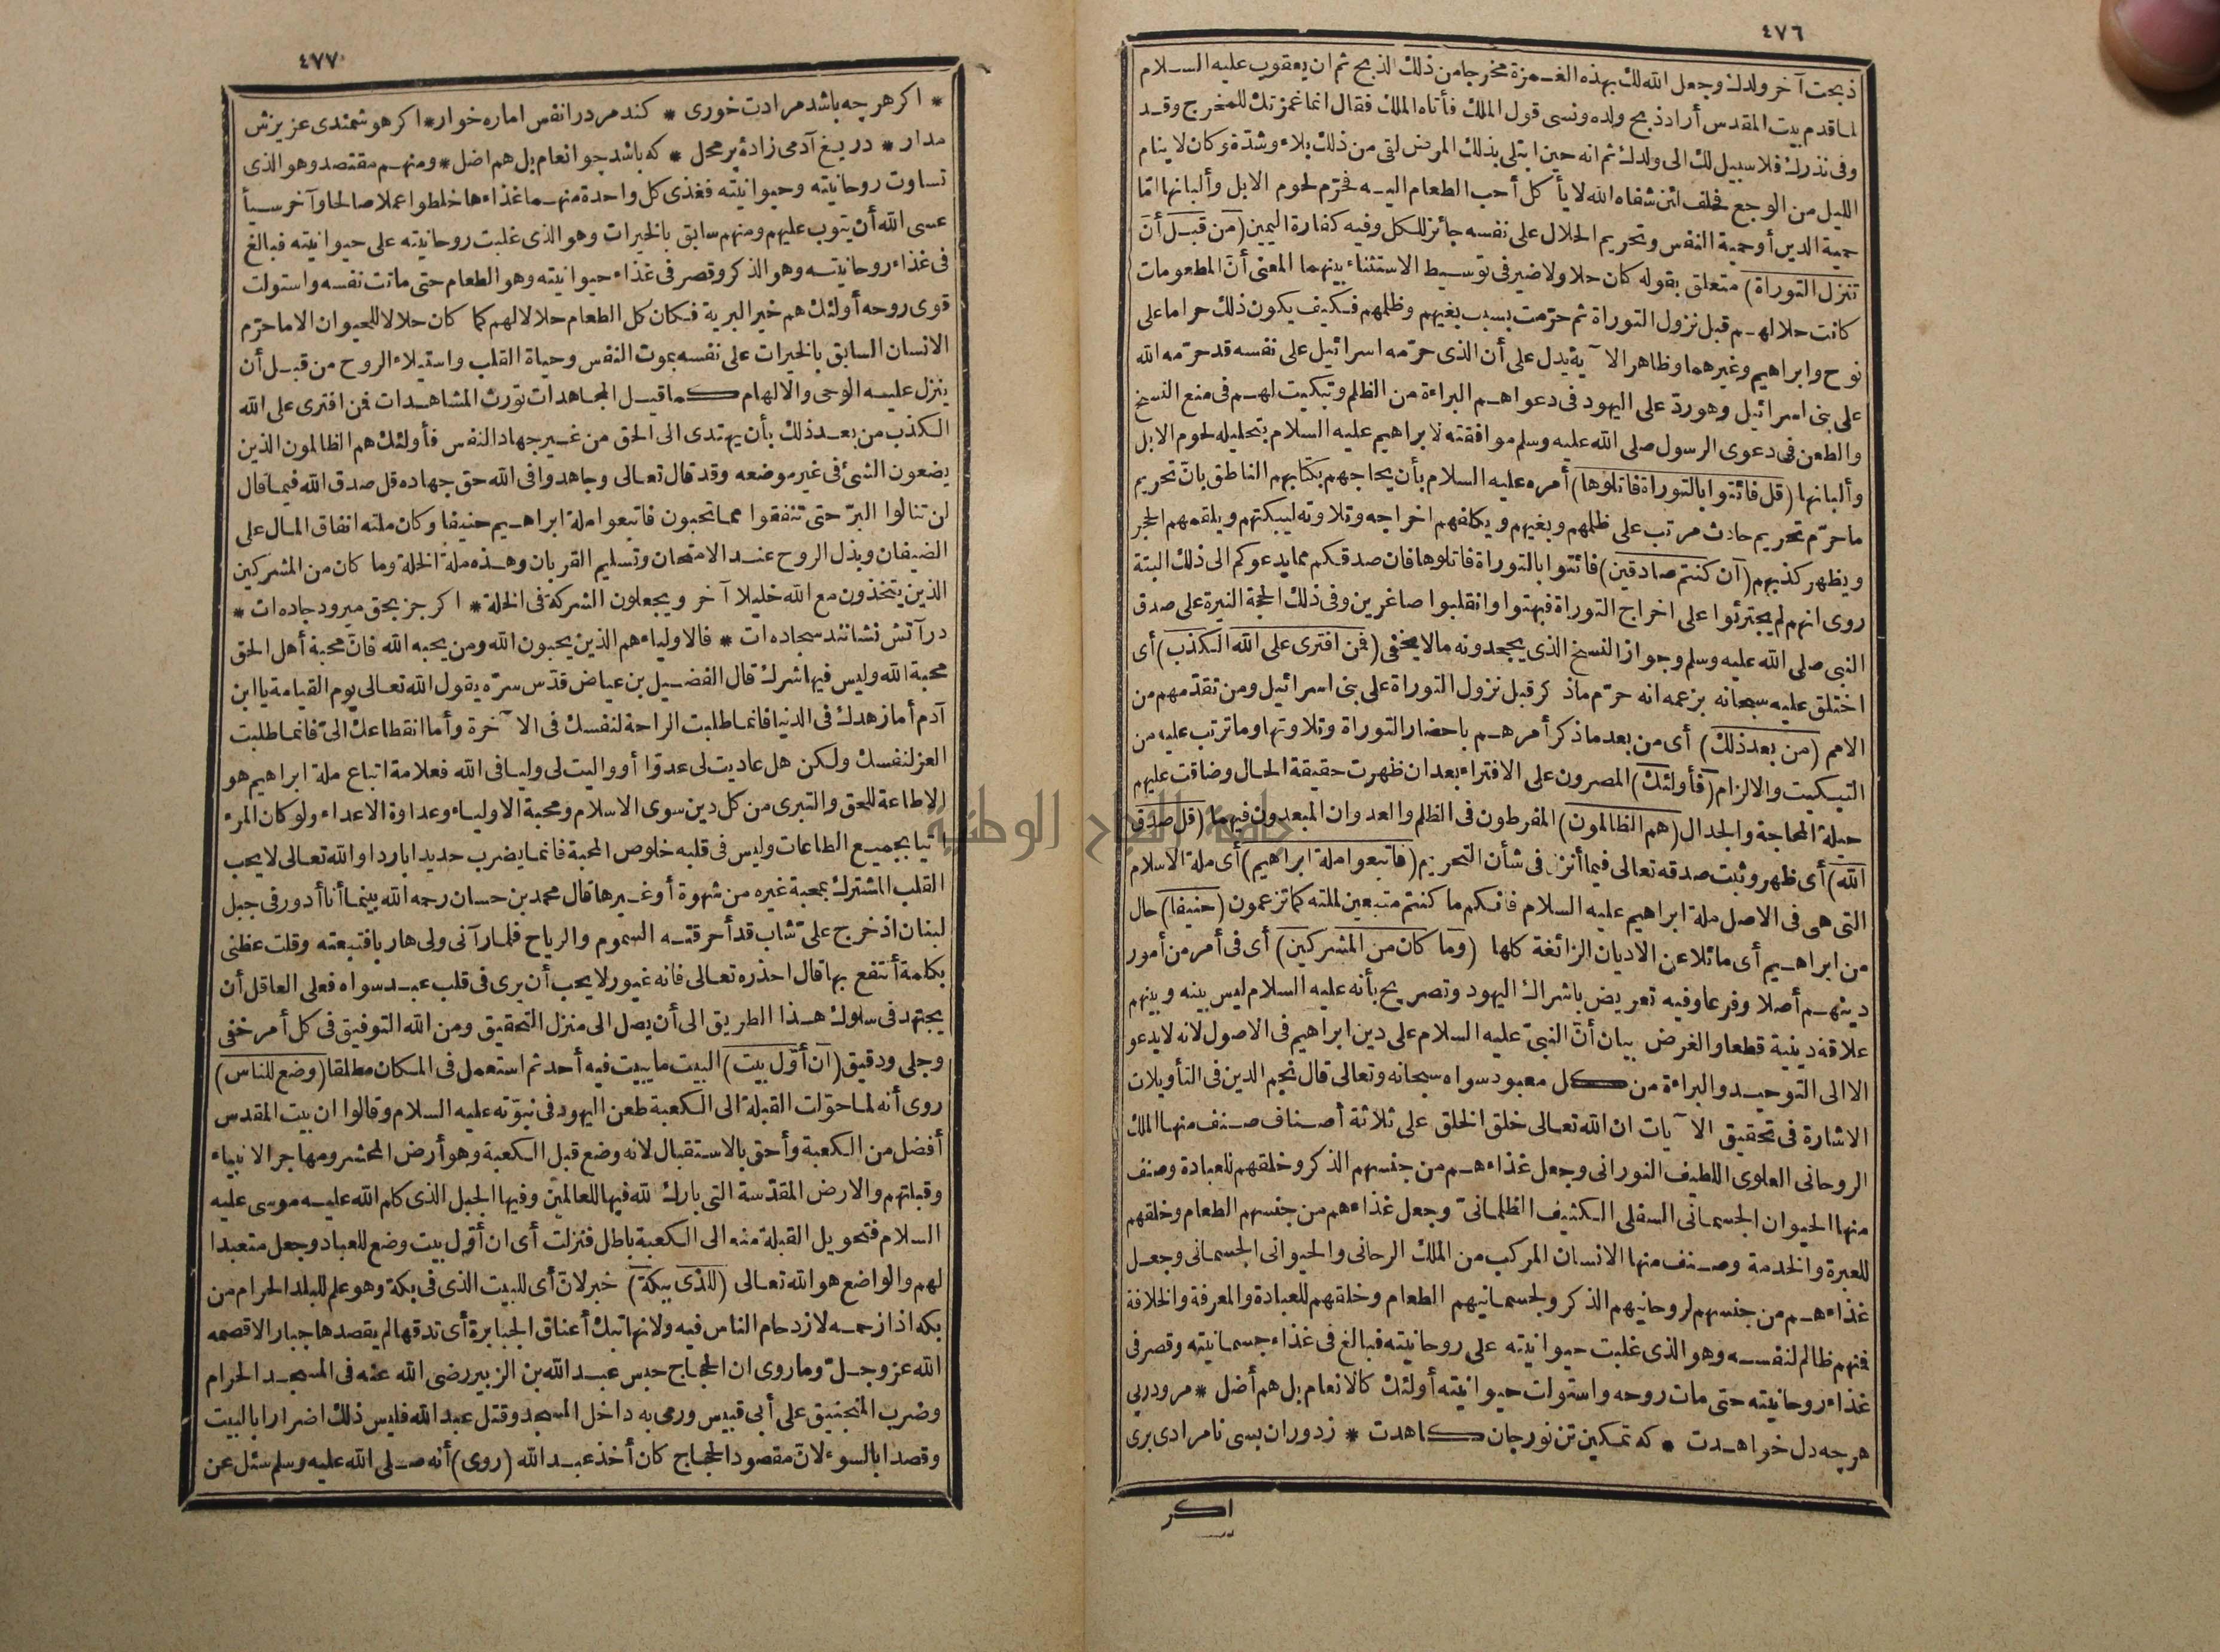 ٤٧٦
ذبحت آخر ولدك وجعل الله لك بهذه الغمزة مخرجا من ذلك الذبح ثم ان يعقوب عليه السلام
لما قدم بيت المقدس أراد ذبح ولده ونسى قول الملك فأتاه الملك فقال انما غمزتك للمخرج وقد
وفى نذرك فلا سبيل لك الى ولدك ثم انه حين ابتلى بذلك المرض لقى من ذلك بلاء وشدة وكان لا ينام
الليل من الوجع فحلف لئن شفاه الله لا يأكل أحب الطعام اليه فحرّم لحوم الابل وألبانها امّا
حمية الدين أو حمية النفس وتحريم الحلال على نفسه جائز للكل وفيه كفارة اليمين (من قبل أن
تنزل التوراة) متعلق بقوله كان حلا ولا ضير فى توسيط الاستثناء بينهما المعنى أنّ المطعومات
كانت حلالهم قبل نزول التوراة ثم حرّمت بسبب بغيهم وظلمهم فكيف يكون ذلك حراما على
نوح وابراهيم وغيرهما وظاهر الآية يدل على أن الذى حرّمه اسرائيل على نفسه قد حرّمه الله
على بنى اسرائيل وهو ردّ على اليهود فى دعواهم البراءة من الظلم وتبكيت لهم فى منع النسخ
والطعن فى دعوى الرسول صلى الله عليه وسلم موافقته لابراهيم عليه السلام بتحليله لحوم الابل
وألبانها (قل فائتوا بالتوراة فاتلوها) أمره عليه السلام بأن يحاجهم بكتابهم الناطق بانّ تحريم
ما حرّم تحريم حادث مرتب على ظلمهم وبغيهم ويكلفهم اخراجه وتلاوته ليبكتهم ويلقمهم الحجر
ويظهر كذبهم (ان كنتم صادقين) فائتوا بالتوراة فاتلوها فان صدقكم مما يدعوكم الى ذلك البتة
روى انهم لم يجترئوا على اخراج التوراة فبهتوا وانقلبوا صاغرين وفى ذلك الحجة النيرة على صدق
النبى صلى الله عليه وسلم وجواز النسخ الذى يجحدونه ما لا يخفى (فمن افترى على الله الكذب) أى
اختلق عليه سبحانه بزعمه انه حرّم ما ذكر قبل نزول التوراة على بنى اسرائيل ومن تقدّمهم من
الامم (من بعد ذلك) أى من بعد ما ذكر أمرهم باحضار التوراة وتلاوتها وما ترتب عليه من
التبكيت والالزام (فأولئك) المصرون على الافتراء بعد ان ظهرت حقيقة الحال وضاقت عليهم
حيلة المحاجة والجدال (هم الظالمون) المفرطون فى الظلم والعدوان المبعدون فيهما (قل صدق
الله) أى ظهر وثبت صدقه تعالى فيما أنزل فى شأن التحريم (فاتبعوا ملة ابراهيم) أى ملة الاسلام
التى هى فى الاصل ملة ابراهيم عليه السلام فانكم ما كنتم متبعين لملته كما تزعمون (حنيفا) حال
من ابراهيم أى مائلا عن الاديان الزائغة كلها (وما كان من المشركين) أى فى أمر من أمور
دينهم أصلا وفرعا وفيه تعريض باشراك اليهود وتصريح بأنه عليه السلام ليس بينه وبينهم
علاقة دينية قطعا والغرض بيان أنّ النبىّ عليه السلام على دين ابراهيم فى الاصول لانه لا يدعو
الا الى التوحيد والبراءة من كل معبود سواه سبحانه وتعالى قال نجم الدين فى التأويلات
الاشارة فى تحقيق الآيات ان الله تعالى خلق الخلق على ثلاثة أصناف صنف منها الملك
الروحانى العلوى اللطيف النورانى وجعل غذاءهم من جنسهم الذكر وخلقهم للعبادة وصنف
منها الحيوان الجسمانى السفلى الكثيف الظلمانىّ وجعل غذاءهم من جنسهم الطعام وخلقهم
للعبرة والخدمة وصنف منها الانسان المركب من الملك الرحانى والحيوانى الجسمانى وجعل
غذاءهم من جنسهم لروحانيهم الذكر ولجسمانيهم الطعام وخلقهم للعبادة والمعرفة والخلافة
فمنهم ظالم لنفسه وهو الذى غلبت حيوانيته على روحانيته فبالغ فى غذاء جسمانيته وقصر فى
غذاء روحانيته حتى مات روحه واستولت حيوانيته أولئك كالانعام بل هم أضل * مرو در پى
هر چه دل خواهدت * كه تمكين تن نور جان كاهدت * ز دوران بسى نامرادى برى
اكر
٤٧٧
* اكر هر چه باشد مرادت خورى * كند مرد را نفس اماره خوار * اكر هوشمندى عزيزش
مدار * دريغ آدمى زادۀ پر محل * كه باشد چو انعام بل هم اضل * ومنهم مقتصد وهو الذى
تساوت روحانيته وحيوانيته فغذى كل واحدة منهما غذاءها خلطوا عملا صالحا وآخر سيأ
عسى الله أن يتوب عليهم ومنهم سابق بالخيرات وهو الذى غلبت روحانيته على حيوانيته فبالغ
فى غذاء روحانيته وهو الذكر وقصر فى غذاء حيوانيته وهو الطعام حتى ماتت نفسه واستولت
قوى روحه أولئك هم خير البرية فكان كل الطعام حلالا لهم كما كان حلالا للحيوان الا ما حرّم
الانسان السابق بالخيرات على نفسه بموت النفس وحياة القلب واستيلاء الروح من قبل أن
ينزل عليه الوحى والالهام كما قيل المجاهدات تورث المشاهدات فمن افترى على الله
الكذب من بعد ذلك بأن يهتدى الى الحق من غير جهاد النفس فأولئك هم الظالمون الذين
يضعون الشئ فى غير موضعه وقد قال تعالى وجاهدوا فى الله حق جهاده قل صدق الله فيما قال
لن تنالوا البرّ حتى تنفقوا مما تحبون فاتبعوا ملة ابراهيم حنيفا وكان ملته انفاق المال على
الضيفان وبذل الروح عند الامتحان وتسليم القربان وهذه ملة الخلة وما كان من المشركين
الذين يتخذون مع الله خليلا آخر ويجعلون الشركة فى الخلة * اكر جز بحق ميرود جاده ات *
در آتش نشانند سجاده ات * فالاولياء هم الذين يحبون الله ومن يحبه الله فانّ محبة أهل الحق
محبة الله وليس فيها شرك قال الفضيل بن عياض قدّس سرّه يقول الله تعالى يوم القيامة يا ابن
آدم أما زهدك فى الدنيا فانما طلبت الراحة لنفسك فى الآخرة وأما انقطاعك الىّ فانما طلبت
العز لنفسك ولكن هل عاديت لى عدوّا أو واليت لى وليا فى الله فعلامة اتباع ملة ابراهيم هو
الاطاعة للحق والتبرى من كل دين سوى الاسلام ومحبة الاولياء وعداوة الاعداء ولو كان المرء
آتيا بجميع الطاعات وليس فى قلبه خلوص المحبة فانما يضرب حديدا باردا والله تعالى لا يحب
القلب المشترك بمحبة غيره من شهوة أو غيرها قال محمد بن حسان رحمه الله بينما أنا أدور فى جبل
لبنان اذ خرج علىّ شاب قد أحرقته السموم والرياح فلما رآنى ولى هاربا فتبعته وقلت عظنى
بكلمة أنتفع بها قال احذره تعالى فانه غيور لا يحب أن يرى فى قلب عبد سواه فعلى العاقل أن
يجتهد فى سلوك هذا الطريق الى أن يصل الى منزل التحقيق ومن الله التوفيق فى كل أمر خفى
وجلى ودقيق (ان أوّل بيت) البيت ما يبيت فيه أحد ثم استعمل فى المكان مطلقا (وضع للناس)
روى أنه لما حوّلت القبلة الى الكعبة طعن اليهود فى نبوّته عليه السلام وقالوا ان بيت المقدس
أفضل من الكعبة وأحق بالاستقبال لانه وضع قبل الكعبة وهو أرض المحشر ومهاجر الانبياء
وقبلتهم والارض المقدّسة التى بارك الله فيها للعالمين وفيها الجبل الذى كلم الله عليه موسى عليه
السلام فتحويل القبلة منه الى الكعبة باطل فنزلت أى ان أوّل بيت وضع للعباد وجعل متعبدا
لهم والواضع هو الله تعالى (للذى ببكة) خبر لانّ أى للبيت الذى فى بكة وهو علم للبلد الحرام من
بكه اذا زحمه لازدحام الناس فيه ولانها تبك أعناق الجبابرة أى تدقها لم يقصدها جبار الا قصمه
الله عز وجلّ وما روى ان الحجاج حبس عبد الله بن الزبير رضى الله عنه فى المسجد الحرام
وضرب المنجنيق على أبى قبيس ورمى به داخل المسجد وقتل عبد الله فليس ذلك اضرارا بالبيت
وقصدا بالسوء لانّ مقصود الحجاج كان أخذ عبد الله (روى) أنه صلى الله عليه وسلم سئل عن
جامعة النجاح الوطنية